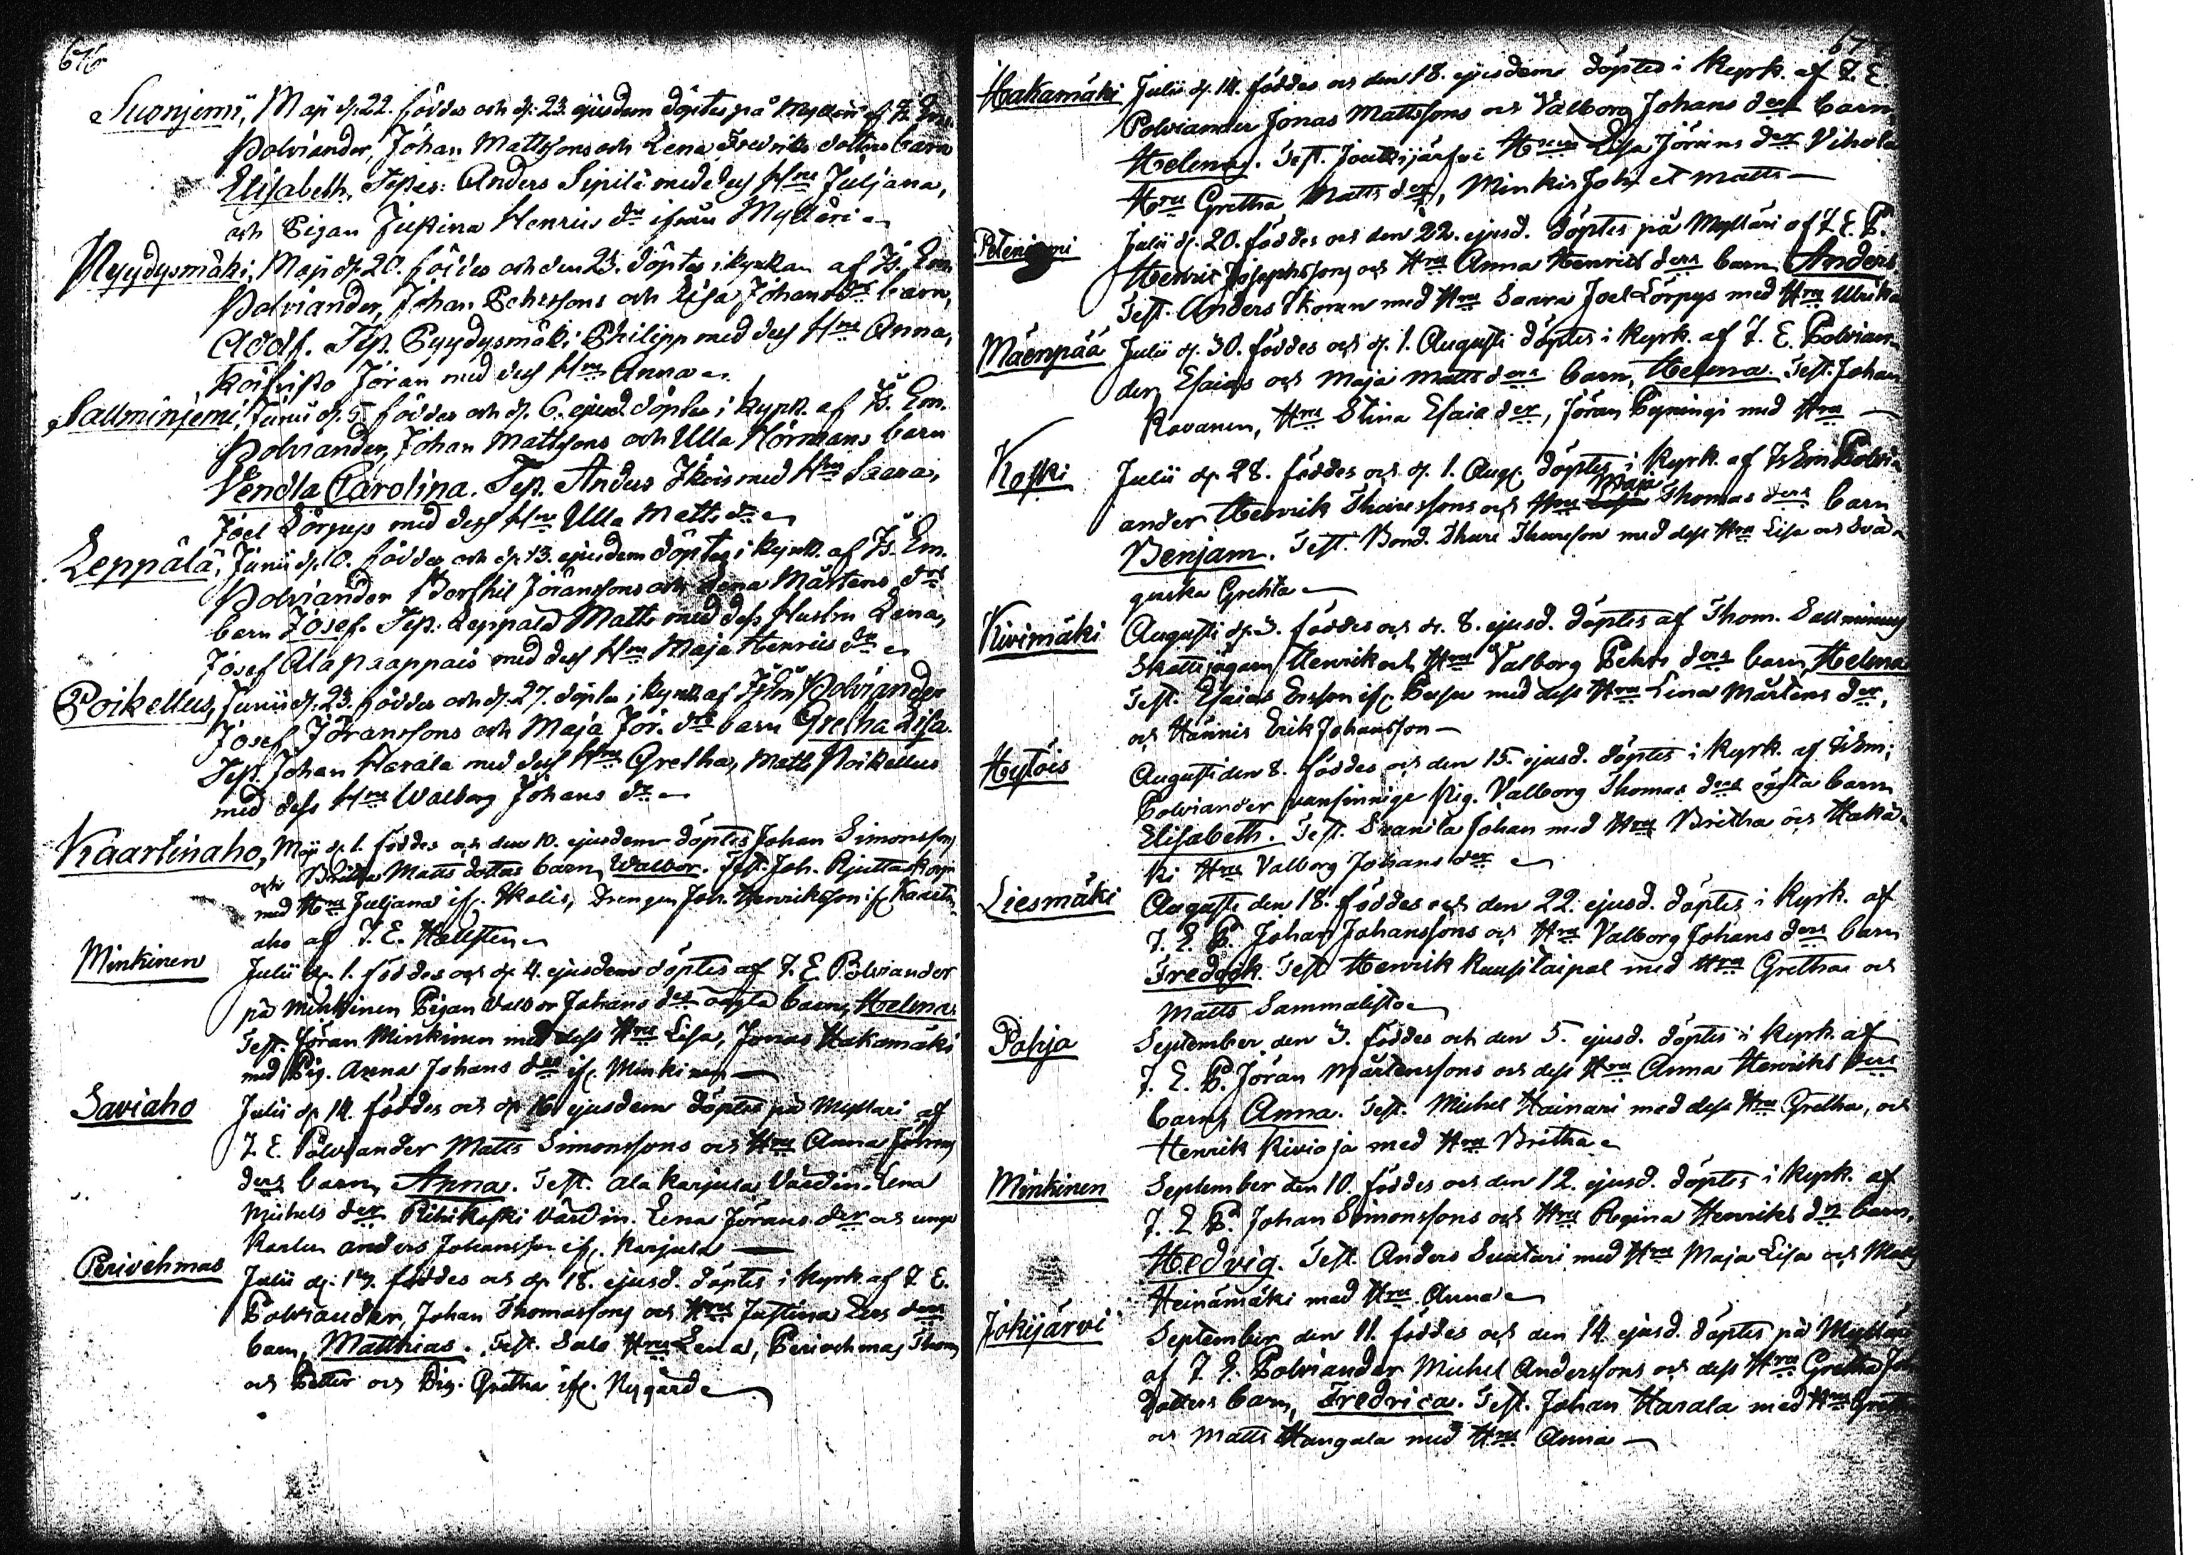 676
Suonjemi, Maji d. 22. föddes och d. 23 ejusdem döptes på Myllari af Is. Em.
Polviander, Johan Mattssons och Lena Fredriks dotters barn
Elisabeth. Testes: Anders Sipilä med dess Hru Juljana,
och Pigan Justina Henrics dr ifrån Myllari
Pyydysmäki, Maji d. 20. föddes och den 23. döptes i kyrkan af Is. Em.
Polviander, Johan Pehrssons och Lisa Johans drs barn,
Adolf. Test. Pyydysmäki Philipp med dess Hru Anna,
Jöran med dess Hru Anna
Salliminjemi, Junii d. 5 föddes och d. 6. ejusd. döptes i kyrk. af Is. Em.
Polviander, Johan Mattssons och Ulla Hörmans barn
Vendla Carolina. Test. Anders Ikois med Hru Saara,
Joel Lörpys med dess Hru Ulla Matts dr
Leppälä, Junii d. 10. föddes och d. 13. ejusdem döptes i kyrk. af Is. Em.
Polviander Borthil Jöranssons och Lena Mårtens drs
barn Josef. Test. Leppälä Matts med dess Hustru Lena,
Josef Alapaappais med dess Hru Maja Henrics dr
Poikellus, Junii d. 23. föddes och d. 27. döptes i kyrk. af Is. Em. Polviander
Josef Jöranssons och Maja Jör. drs barn Gretha Lisa.
Test. Johan Harala med dess Hru Gretha, Matts Poikellus
med dess Hru Walborg Johans dr
Kaartinaho, Maji d. 1. föddes och den 10. ejusdem döptes Johan Simonssons
och Britha Matts dotters barn, Walbor. Test. Joh.
med Hru Juljana ifr. Halis, Drengen Joh. Henriksson ifr. Kaartin-
aho af J. E. Hallsten
Minkinen
Julii d. 1. föddes och d. 4. ejusdem döptes af J. E. Polviander
på Minkinen Pigan Valbor Johans drs oägta barn, Helena
Test. Jöran Minkinen med dess Hru Lisa, Jonas Hakamäki
med Pig. Anna Johans dr ifr. Minkinen
Saviaho
Julii d. 14. föddes och d. 16 ejusdem döptes på Myllari af
J. E. Polviander Matts Simonssons och Hru Anna Jörans
ders barn, Anna. Test. Alakarjula Värdin. Lena
Michels der Rihikoski värdin. Lena Jörans der och unge
Karlen Anders Johansson ifr. Karjula
Perivehmas
Julii d. 17. föddes och d. 18. ejusd. döptes i kyrk. af J. E.
Polviander, Johan Thomassons och Hru Justina ders
barn, Matthias. Test. Salo Hru Lena, Perivehmas Thom.
och Petter och Pig. Gretha ifr. Nygård
Hakamäki Julii d. 14. föddes och den 18. ejusdem döptes i kyrk. af J. E.
Polviander Jonas Mattssons och Valborg Johans ders barn
Helena. Test. Joutsijärfvi Hrun Lisa Jörans der Vihola
Hru Gretha Matts der, Minkis Joh. et Matts
Petenjemi
Julii d. 20. föddes och den 22. ejusd. döptes på Myllari af J. E. P.
Henric Josephssons och Hru Anna Henrics ders barn Anders
Test. Anders Ikonen med Hru Saara Joel Lörpys med Hru Ulrika
Mäenpää Julii d. 30. föddes och d. 1. Augusti döptes i kyrk. af J. E. Polvian-
der, Esaias och Maja Matts ders barn, Helena. Test. Johan
Rovanen, Hru Stina Esaia der, Jöran Pyningi med Hru
Koski
Julii d. 28. föddes och d. 1. Aug. döptes i kyrk. af Is Em Polvi-
ander Henrik Thuressons och Hru Maja Thomas ders barn
Benjam. Test. Bond. Thure Thuresson med dess Hru Lisa och Svä-
gerska Gretha
Kivimäki
Augusti d. 3. föddes och d. 8. ejusd. döptes af Thom. Salliminus
Skattejägarn Henrik och Hru Valborg Pehrs ders barn, Helena
Test. Esaias Ersson ifr. med dess Hru Lena Mårtens der,
och Hännis Erik Johansson
Hytöis
Augusti den 8. föddes och den 15. ejusd. döptes i kyrk. af Is Em.
Polviander vansinniga Pig. Valborg Thomas ders oägta barn
Elisabeth. Test. Svanila Johan med Hru Britha och Hakä-
ki Hru Valborg Johans der
Liesmäki
Augusti den 18. föddes och den 22. ejusd. döptes i kyrk. af
J. E. P. Johan Johanssons och Hru Valborg Johans ders barn
Fredrik. Test. Henrik Kuusilaipal med Hru Gretha och
Matts Sammalisto
Pohja
September den 3. föddes och den 5. ejusd. döptes i kyrk. af
J. E. P. Jöran Mårtenssons och dess Hru Anna Henriks ders
barn, Anna. Test. Michel Hainari med dess Hru Gretha, och
Henrik Kivioja med Hru Britha
Minkinen
September den 10. föddes och den 12. ejusd. döptes i kyrk. af
J. E. P. Johan Simonssons och Hru Regina Henriks drs barn,
Hedvig. Test. Anders Suutari med Hru Maja Lisa och Matts
Heinämäki med Hru Anna
Jokijärvi
September den 11. föddes och den 14. ejusd. döptes på Myllari
af J. E. Polviander Michel Anderssons och dess Hru Gretha Joh.
dotters barn, Fredrica. Test. Johan Harala med Hru Gretha
och Matts Hangala med Hru Anna